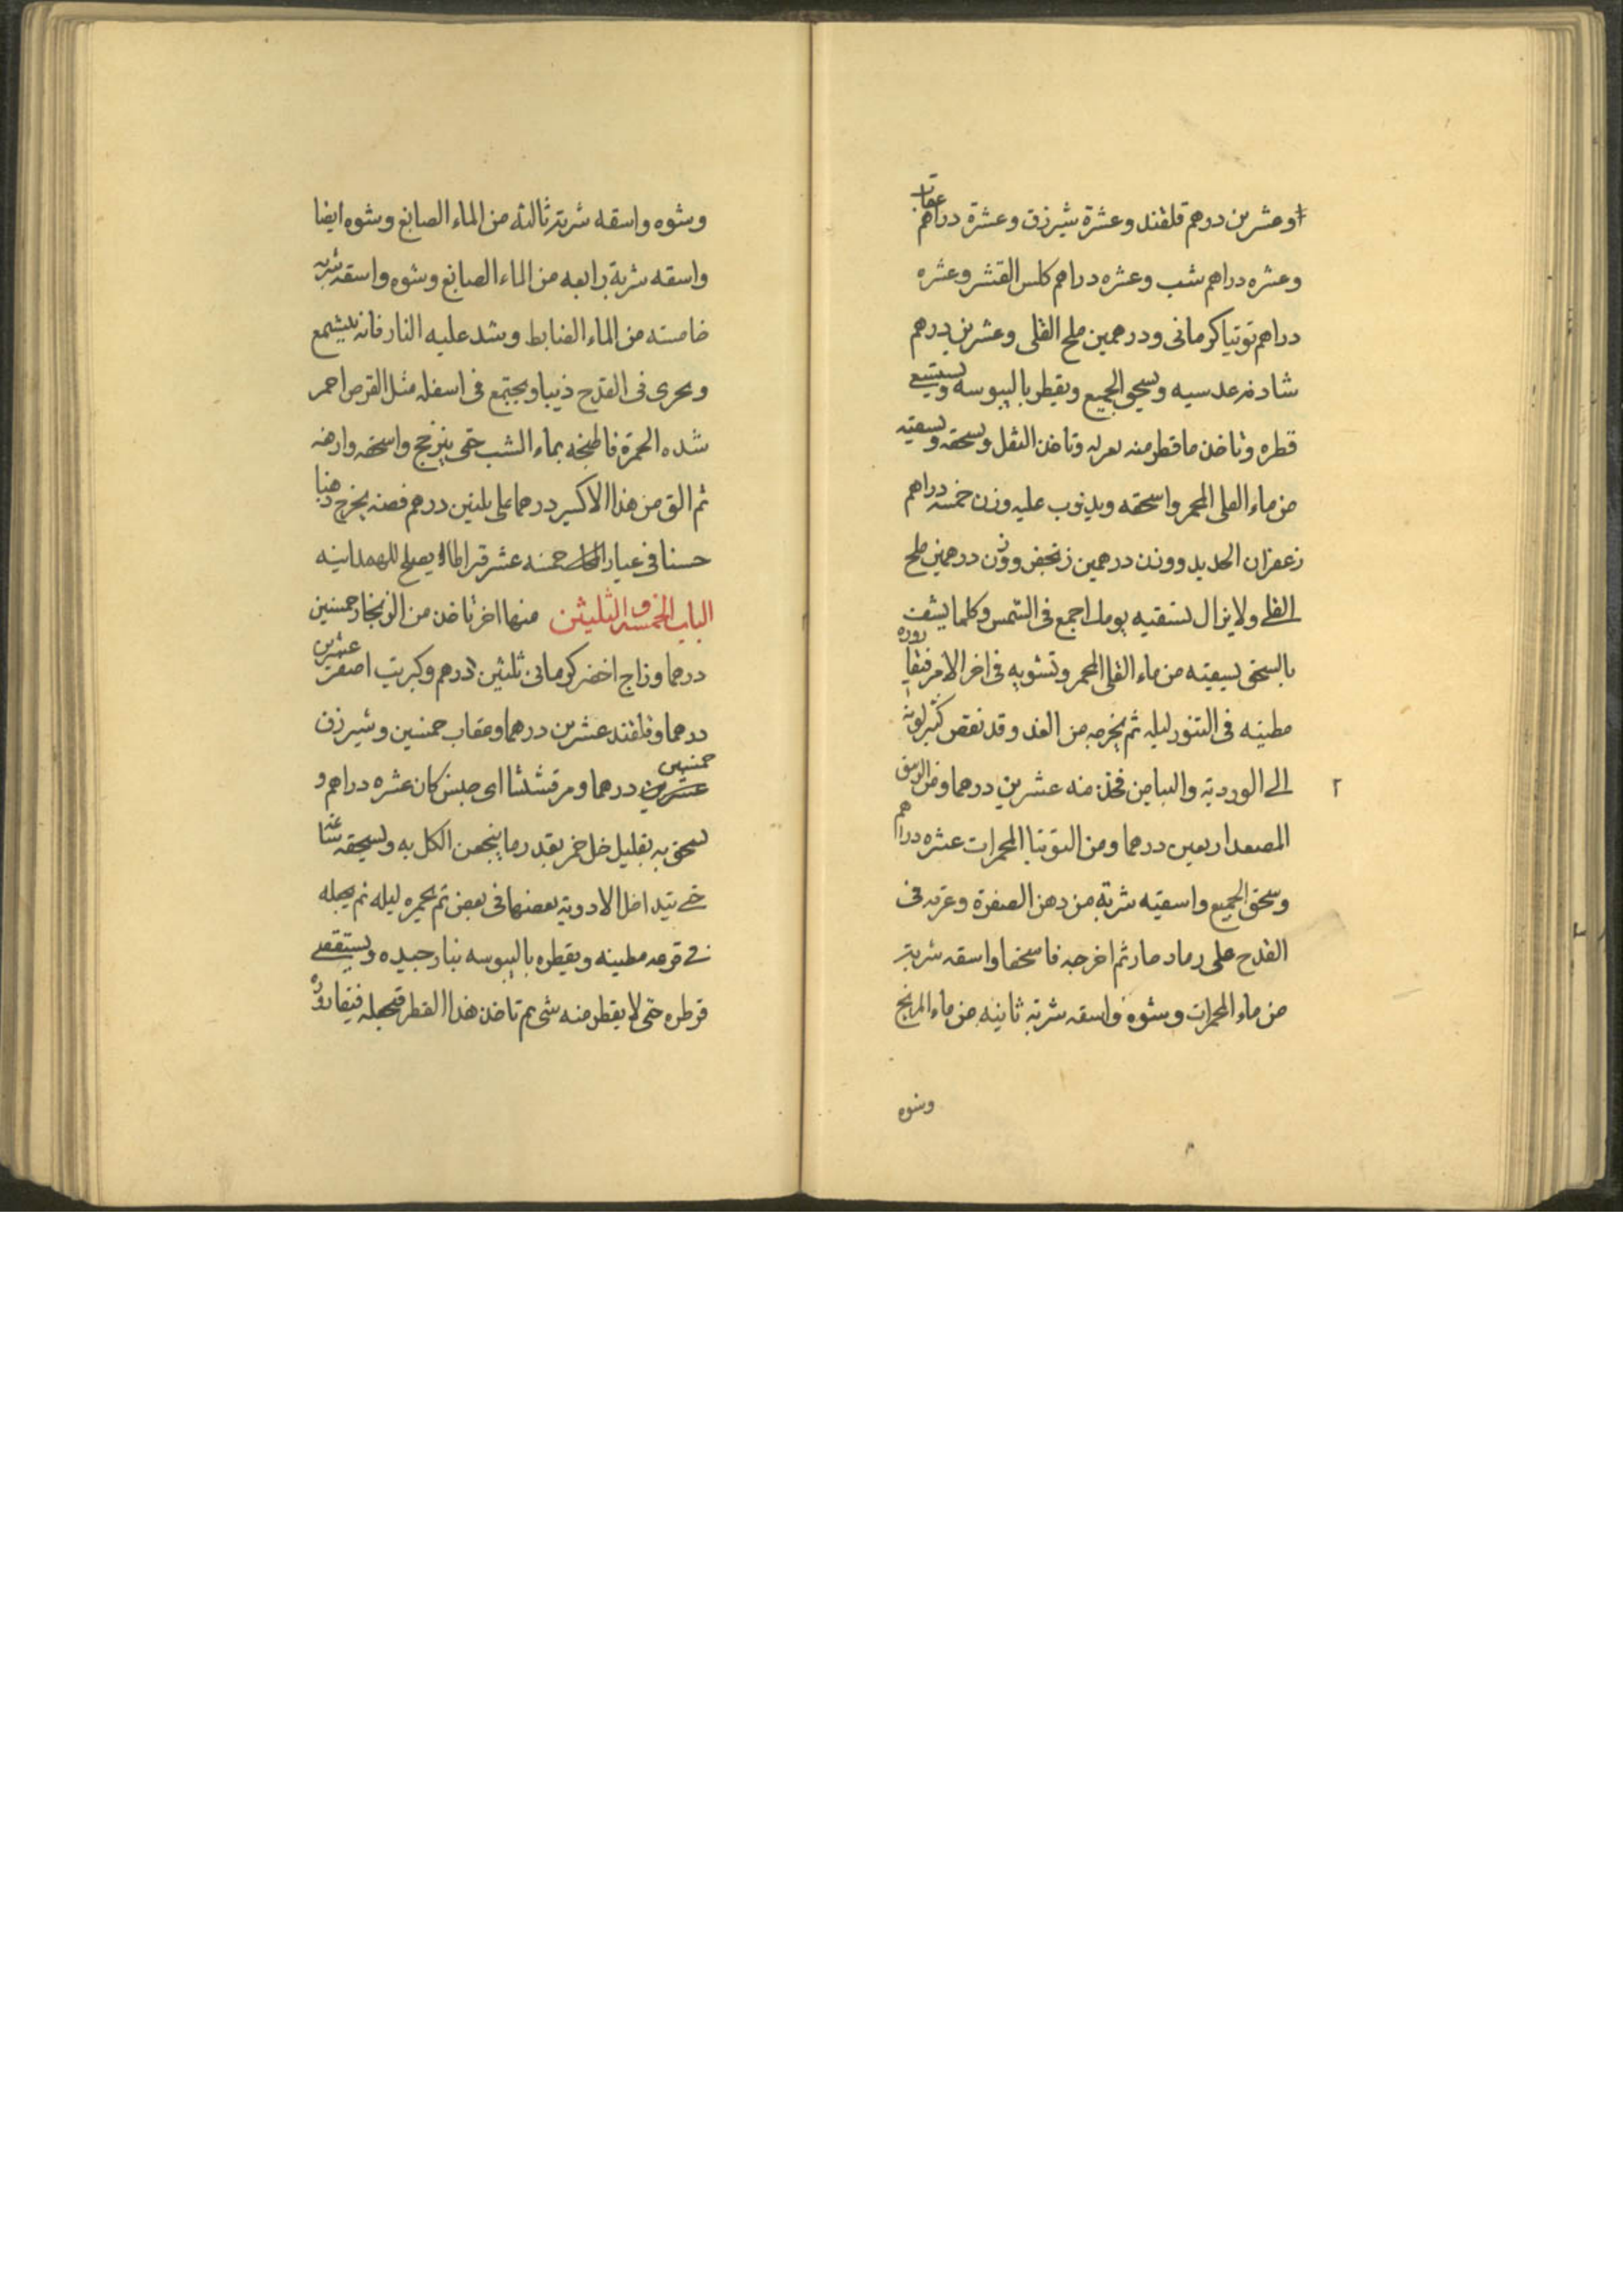 وعشرين درهم قلقند وعشرة شيرزق وعشرة دراهم عقاب
وعشره دراهم شب وعشره دراهم كلس القشر وعشره
دراهم توتيا كرمانى ودرهمين ملح القلى وعشرين درهم
شادنه عدسيه ويسحق الجميع ويقطر باليبوسه ويستقصى
قطره وتاخذ ما قطر منه تعزله وتاخذ الثقل وتسحقه وتسقيه
من ماء القلى المحمر واسحقه ويذوب عليه وزن خمسه دراهم
زعفران الحديد ووزن درهمين زنجفر ووزن درهمين ملح
القلى ولا يزال تسقيه يومك اجمع فى الشمس وكلما ينشف
بالسحق تسقيه من ماء القلى المحمر وتشويه فى اخر الامر قنينة
مطينه فى التنور ليله ثم يخرجه من الغد وقد نقص كثير لونه
الى الورديه والبياض فخذ منه عشرين درهما ومن الزيبق
المصعد اربعين درهما ومن التوتيا المحمرات عشره دراهم
وسحق الجميع واسقيه شربة من دهن الصفرة وغرته فى
القدح على رماد حار ثم اخرجه فاسحقها واسقه شربة
من ماء المحمرات وشوه واسقه شربة ثانيه من ماء الزنج
وشوه
وشوه واسقه شربة ثالثه من الماء الصابغ وشوه ايضا
واسقه شربة رابعه من الماء الصابغ وشوه واسقه شربه
خامسته من الماء الضابط ويشد عليه النار فانه يتشمع
ويجرى فى القدح ذيبا ويجتمع فى اسفله مثل القرص احمر
شده الحمرة فاطبخه بماء الشب حتى يتزنج واسحقه وارفعه
ثم الق من هذا الاكسير درهما على ثلثين درهم فضه يخرج ذهبا
حسنا فى عيار خمسه عشر قيراطا لا يصلح للهمدانيه
الباب الخمسه والثلثين منها اخر تاخذ من الزنجار خمسين
درهما وزاج اخضر كرمانى ثلثين درهم وكبريت اصفر عشرين
درهما وقلقند عشرين درهما وعقاب خمسين وشيرزق
خمسين درهما ومرقشيثا اى جنس كان عشره دراهم و
تسحق به بقليل خل خمر بقدر ما ينعجن الكل به وتسحقه ساعه
حتى يتداخل الادويه بعضها فى بعض ثم تخمره ليله ثم يجعله
فى قرعه مطينه ويقطره باليبوسه بنار جيده ويستقصى
قطره حتى لا يقطر منه شى ثم تاخذ هذا القطر فتجعله